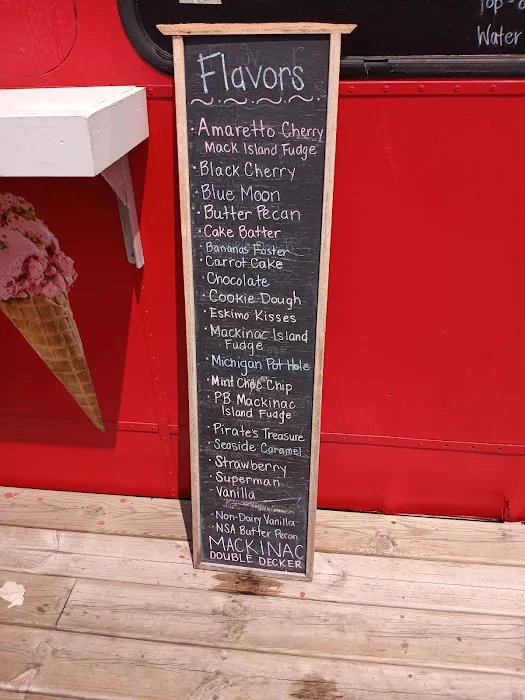 Top-
Water
Flavors
· Amaretto Cherry
Mack Island Fudge
· Black Cherry
· Blue Moon
· Butter Pecan
· Cake Batter
· Bananas Foster
· Carrot Cake
· Chocolate
· Cookie Dough
· Eskimo Kisses
· Mackinac Island
Fudge
· Michigan Pot Hole
· Mint Choc Chip
· PB Mackinac
Island Fudge
· Pirate's Treasure
· Seaside Caramel
· Strawberry
· Superman
· Vanilla
· Non-Dairy Vanilla
· NSA Butter Pecan
MACKINAC
DOUBLE DECKER